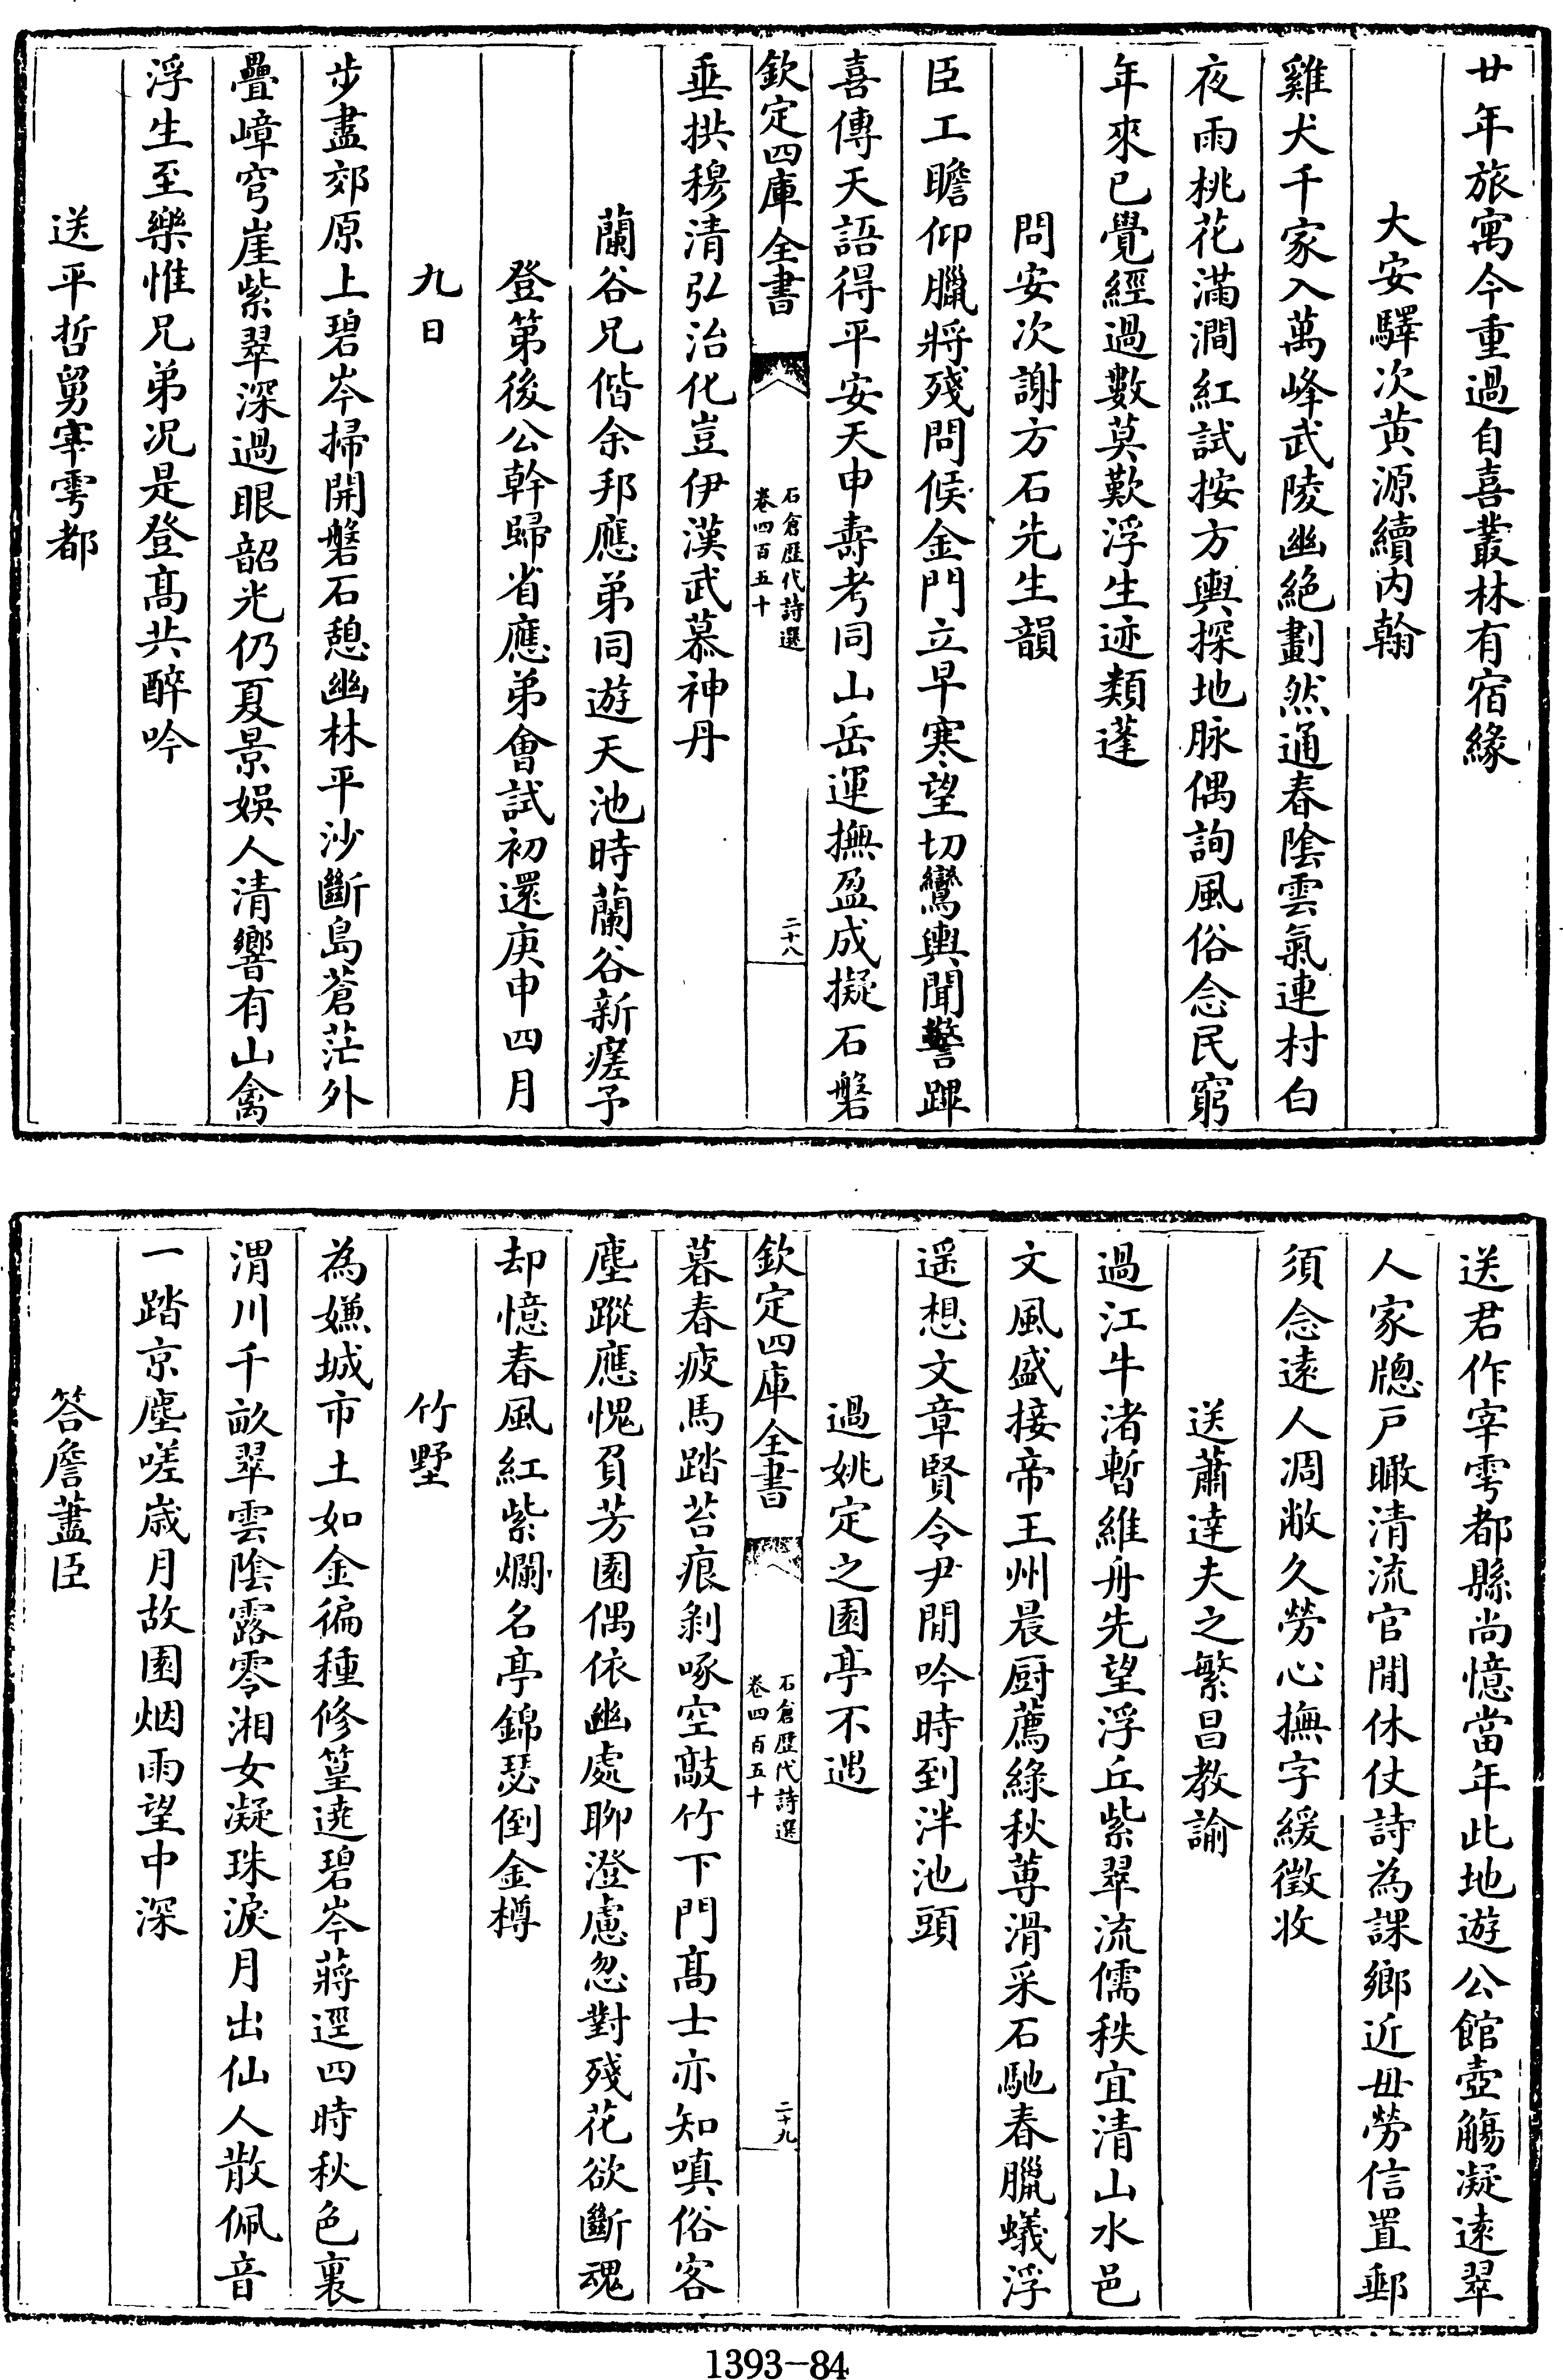 廿年旅寓今重過自喜叢林有宿緣
大安驛次黄源續内翰
雞犬千家入萬峰武陵幽絶劃然通春陰雲氣連村白
夜雨桃花滿澗紅試按方輿探地脉偶詢風俗念民窮
年來已覺經過數莫歎浮生迹類蓬
問安次謝方石先生韻
臣工瞻仰臘將殘問候金門立早寒望切鸞輿聞警蹕
喜傳天語得平安天申壽考同山岳運撫盈成擬石磐
欽定四庫全書
石倉歴代詩選
卷四百五十
二十八
垂拱穆清弘治化豈伊漢武慕神丹
蘭谷兄偕余邦應弟同遊天池時蘭谷新瘥予
登第後公幹歸省應弟會試初還庚申四月
九日
步盡郊原上碧岑掃開磐石憩幽林平沙斷島蒼茫外
疊嶂穹崖紫翠深過眼韶光仍夏景娛人清響有山禽
浮生至樂惟兄弟况是登高共醉吟
送平哲舅宰雩都
送君作宰雩都縣尚憶當年此地遊公館壺觴凝遠翠
人家牕戶瞰清流官閒休仗詩為課鄉近毋勞信置郵
須念逺人凋敝久勞心撫字緩徵收
送蕭逹夫之繁昌教諭
過江牛渚暫維舟先望浮丘紫翠流儒秩宜清山水邑
文風盛接帝王州晨厨薦綠秋蓴滑采石馳春臘蟻浮
遥想文章賢令尹閒吟時到泮池頭
過姚定之園亭不遇
欽定四庫全書
石倉歴代詩選
卷四百五十
二十九
暮春疲馬踏苔痕剝啄空敲竹下門髙士亦知嗔俗客
塵蹤應愧負芳園偶依幽處聊澄慮忽對殘花欲斷魂
却憶春風紅紫爛名亭錦瑟倒金樽
竹墅
為嫌城市土如金徧種修篁遶碧岑蔣逕四時秋色裏
渭川千畝翠雲陰露零湘女凝珠淚月出仙人散佩音
一踏京塵嗟歳月故園烟雨望中深
答詹藎臣
1393-84